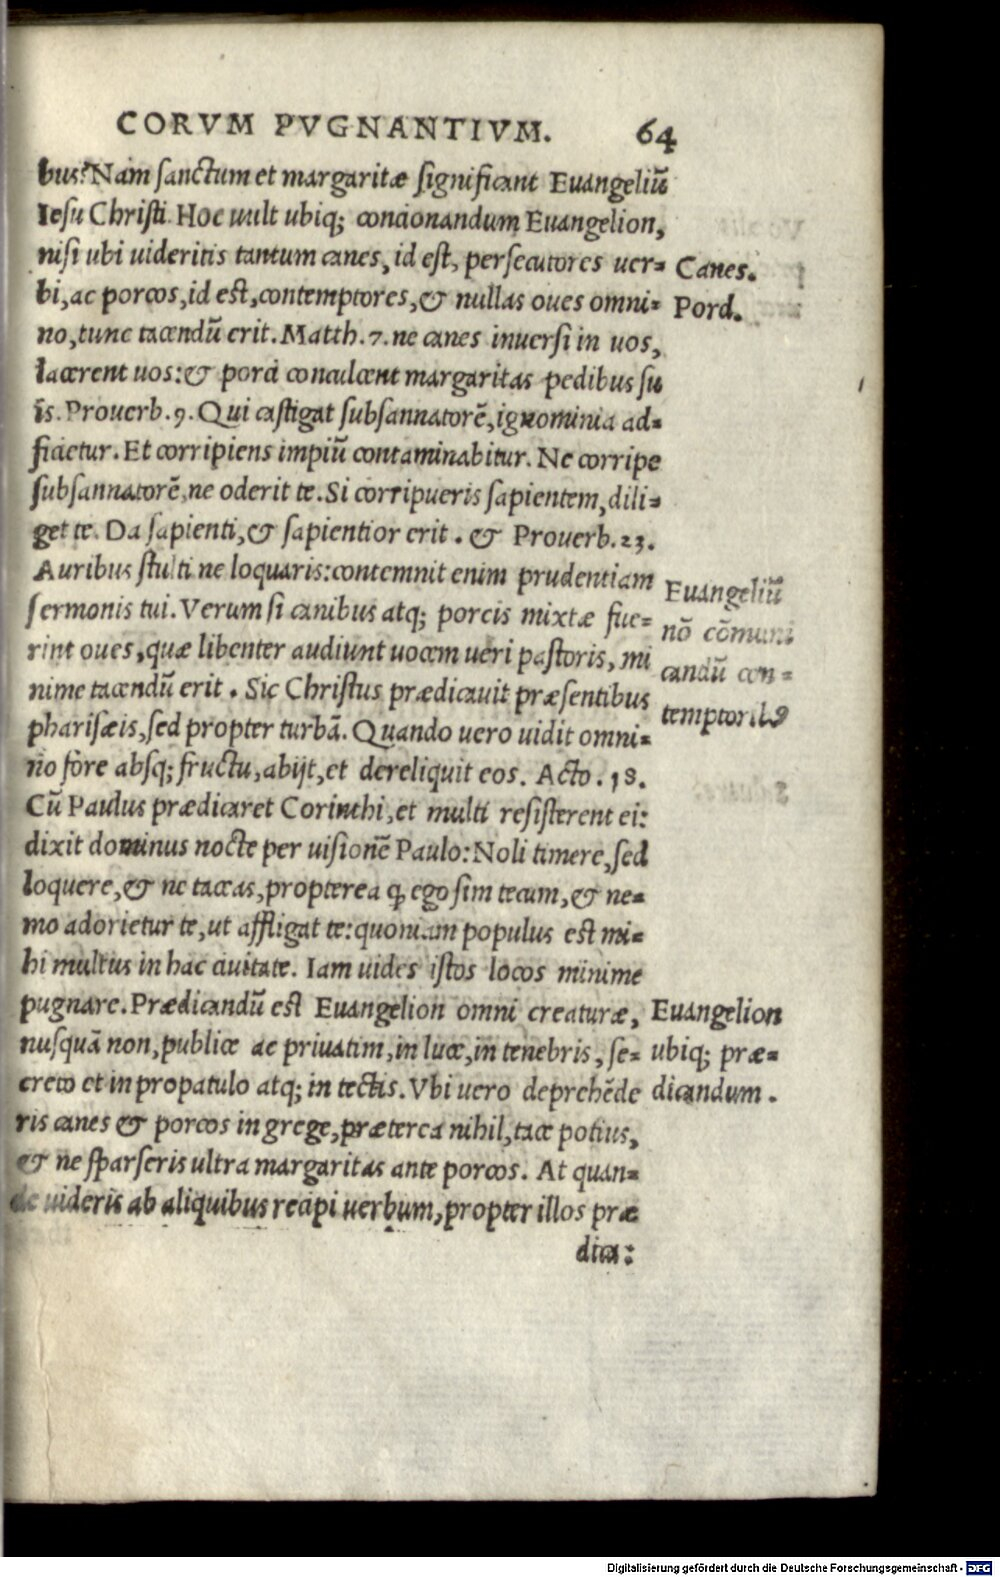 CORVM PVGNANTIVM. 64
bus? Nam sanctum et margaritæ significant Euangeliũ
Iesu Christi. Hoc uult ubiq; concionandum Euangelion,
nisi ubi uideritis tantum canes, id est, persecutores uer=
Canes.
bi, ac porcos, id est, contemptores, & nullas oues omni=
Porci.
no, tunc tacendũ erit. Matth. 7. ne canes inuersi in uos,
lacerent uos: & porci conculcent margaritas pedibus su
is. Prouerb. 9. Qui castigat subsannatorẽ, ignominia ad=
ficietur. Et corripiens impiũ contaminabitur. Ne corripe
subsannatorẽ, ne oderit te. Si corripueris sapientem, dili=
get te. Da sapienti, & sapientior erit. & Prouerb. 23.
Auribus stulti ne loquaris: contemnit enim prudentiam
sermonis tui. Verum si canibus atq; porcis mixtæ fue=
rint oues, quæ libenter audiunt uocem ueri pastoris, mi
nime tacendũ erit. Sic Christus prædicauit præsentibus
pharisæis, sed propter turbã. Quando uero uidit omni=
Euangeliũ
nõ cõmuni
candũ con=
temptoribꝰ
no fore absq; fructu, abijt, et dereliquit eos. Acto. 18.
Cũ Paulus prædicaret Corinthi, et multi resisterent ei:
dixit dominus nocte per uisionẽ Paulo: Noli timere, sed
loquere, & ne taceas, propterea ꝙ ego sim tecum, & ne=
mo adorietur te, ut affligat te: quoniam populus est mi=
hi multus in hac ciuitate. Iam uides istos locos minime
pugnare. Prædicandũ est Euangelion omni creaturæ,
nusquã non, publice ac priuatim, in luce, in tenebris, se=
creto et in propatulo atq; in tectis. Vbi uero deprehẽde
Euangelion
ubiq; præ=
dicandum.
ris canes & porcos in grege, præterea nihil, tace potius,
& ne sparseris ultra margaritas ante porcos. At quan=
do uideris ab aliquibus recipi uerbum, propter illos præ
dica:
Digitalisierung gefördert durch die Deutsche Forschungsgemeinschaft - DFG